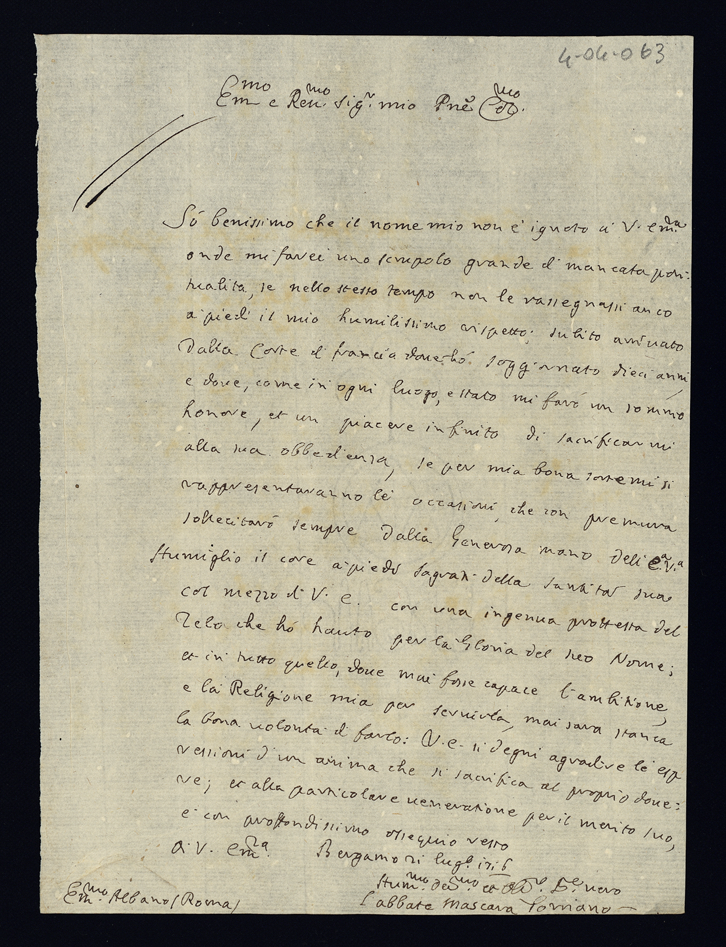 4-04-063
Em.mo e Re.mo Sig.r mio Pne Col.mo
Só benissimo che il nome mio non é ignoto á V. Em.za
onde mi farei uno scrupolo grande d' mancata pon:
tualitá, se nello stesso tempo non le rassegnassi anco
a piedi il mio humilissimo rispetto; subito arriuato
dalla Corte d' francia doue hó soggiornato dieci anni,
e doue, come in ogni luogo, e stato mi faró un sommo
honore, et un piacere infinito di sacrificarmi
alla sua obbedienza, se per mia bona sorte mi si
rappresentaranno le occasioni, che con premura
sollecitaró sempre dalla Generosa mano dell' E.a V.a
Humiglio il core a piedi sagrati della santitá sua
col mezzo d' V. E. con una ingenua protesta del
Zelo che hó hauto per la Gloria del suo Nome;
et in tutto quello, doue mai fosse capace l'ambitione,
e la Religione mia per seruirla, mai sara stanca
la bona uolontá d' farlo: V. E. si degni agradire le esp
ressioni d'un anima che si sacrifica al proprio doue:
re; et alla particolare ueneratione per il merito suo,
e con profondissimo ossequio resto
Di V. Em.za Bergamo lugl.
Hum.mo de.mo et Ser. uero
Em.mo Albano (Roma) L'abbate Mascara